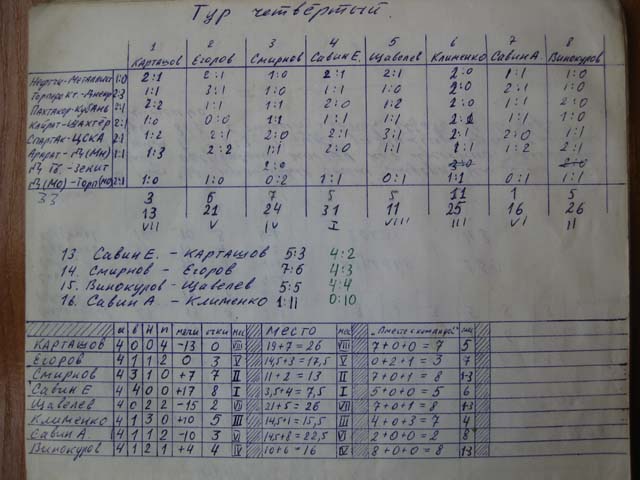 Тур четвёртый.
1 2 3 4 5 6 7 8
Карташов Егоров Смирнов Савин Е. Щавелев Клименко Савин А. Винокуров
Нефтчи-Металлист 1:0 2:1 2:1 1:0 2:1 2:1 2:0 1:1 1:0
Торпедо Кт.-Днепр 2:3 1:1 3:1 1:0 1:1 1:0 2:0 2:1 1:0
Пахтакор-Кубань 2:1 2:2 1:1 1:1 2:0 1:2 2:0 1:1 2:0
Кайрат-Шахтёр 2:1 1:0 0:0 1:1 1:1 1:1 2:1 1:1 1:0
Спартак-ЦСКА 1:2 2:1 2:0 2:1 3:1 2:1 2:0 1:1
Арарат-Д(Мн) 1:1 1:3 2:2 1:1 2:0 1:1 1:1 1:2 2:1
Д Тб.-Зенит 2:0 3:0 2:0
Д(Мо)-Торп(Мо) 2:1 1:0 1:0 0:2 1:1 0:1 1:1 0:1 1:1
33 3 6 7 5 5 11 1 5
13 21 24 31 11 25 16 26
VII V IV I VIII III VI II
13. Савин Е. – Карташов 5:3 4:2
14. Смирнов – Егоров 7:6 4:3
15. Винокуров – Щавелев 5:5 4:4
16. Савин А – Клименко 1:11 0:10
и в н п мячи очки место "Вместе с командой"
Карташов 4 0 0 4 -13 0 VIII 19+7=26 VIII 7+0+0=7 5
Егоров 4 1 1 2 0 3 V 14,5+3=17,5 V 0+2+1=3 7
Смирнов 4 3 1 0 +7 7 II 11+2=13 II 7+0+1=8 1-3
Савин Е 4 4 0 0 +17 8 I 3,5+4=7,5 I 5+0+0=5 6
Щавелев 4 0 2 2 -15 2 VII 21+5=26 VII 7+0+1=8 1-3
Клименко 4 1 3 0 +10 5 III 14,5+1=15,5 III 4+0+3=7 4
Савин А. 4 1 1 2 -10 3 VI 14,5+8=22,5 VI 2+0+0=2 8
Винокуров 4 1 2 1 +4 4 IV 10+6=16 IV 8+0+0=8 1-3